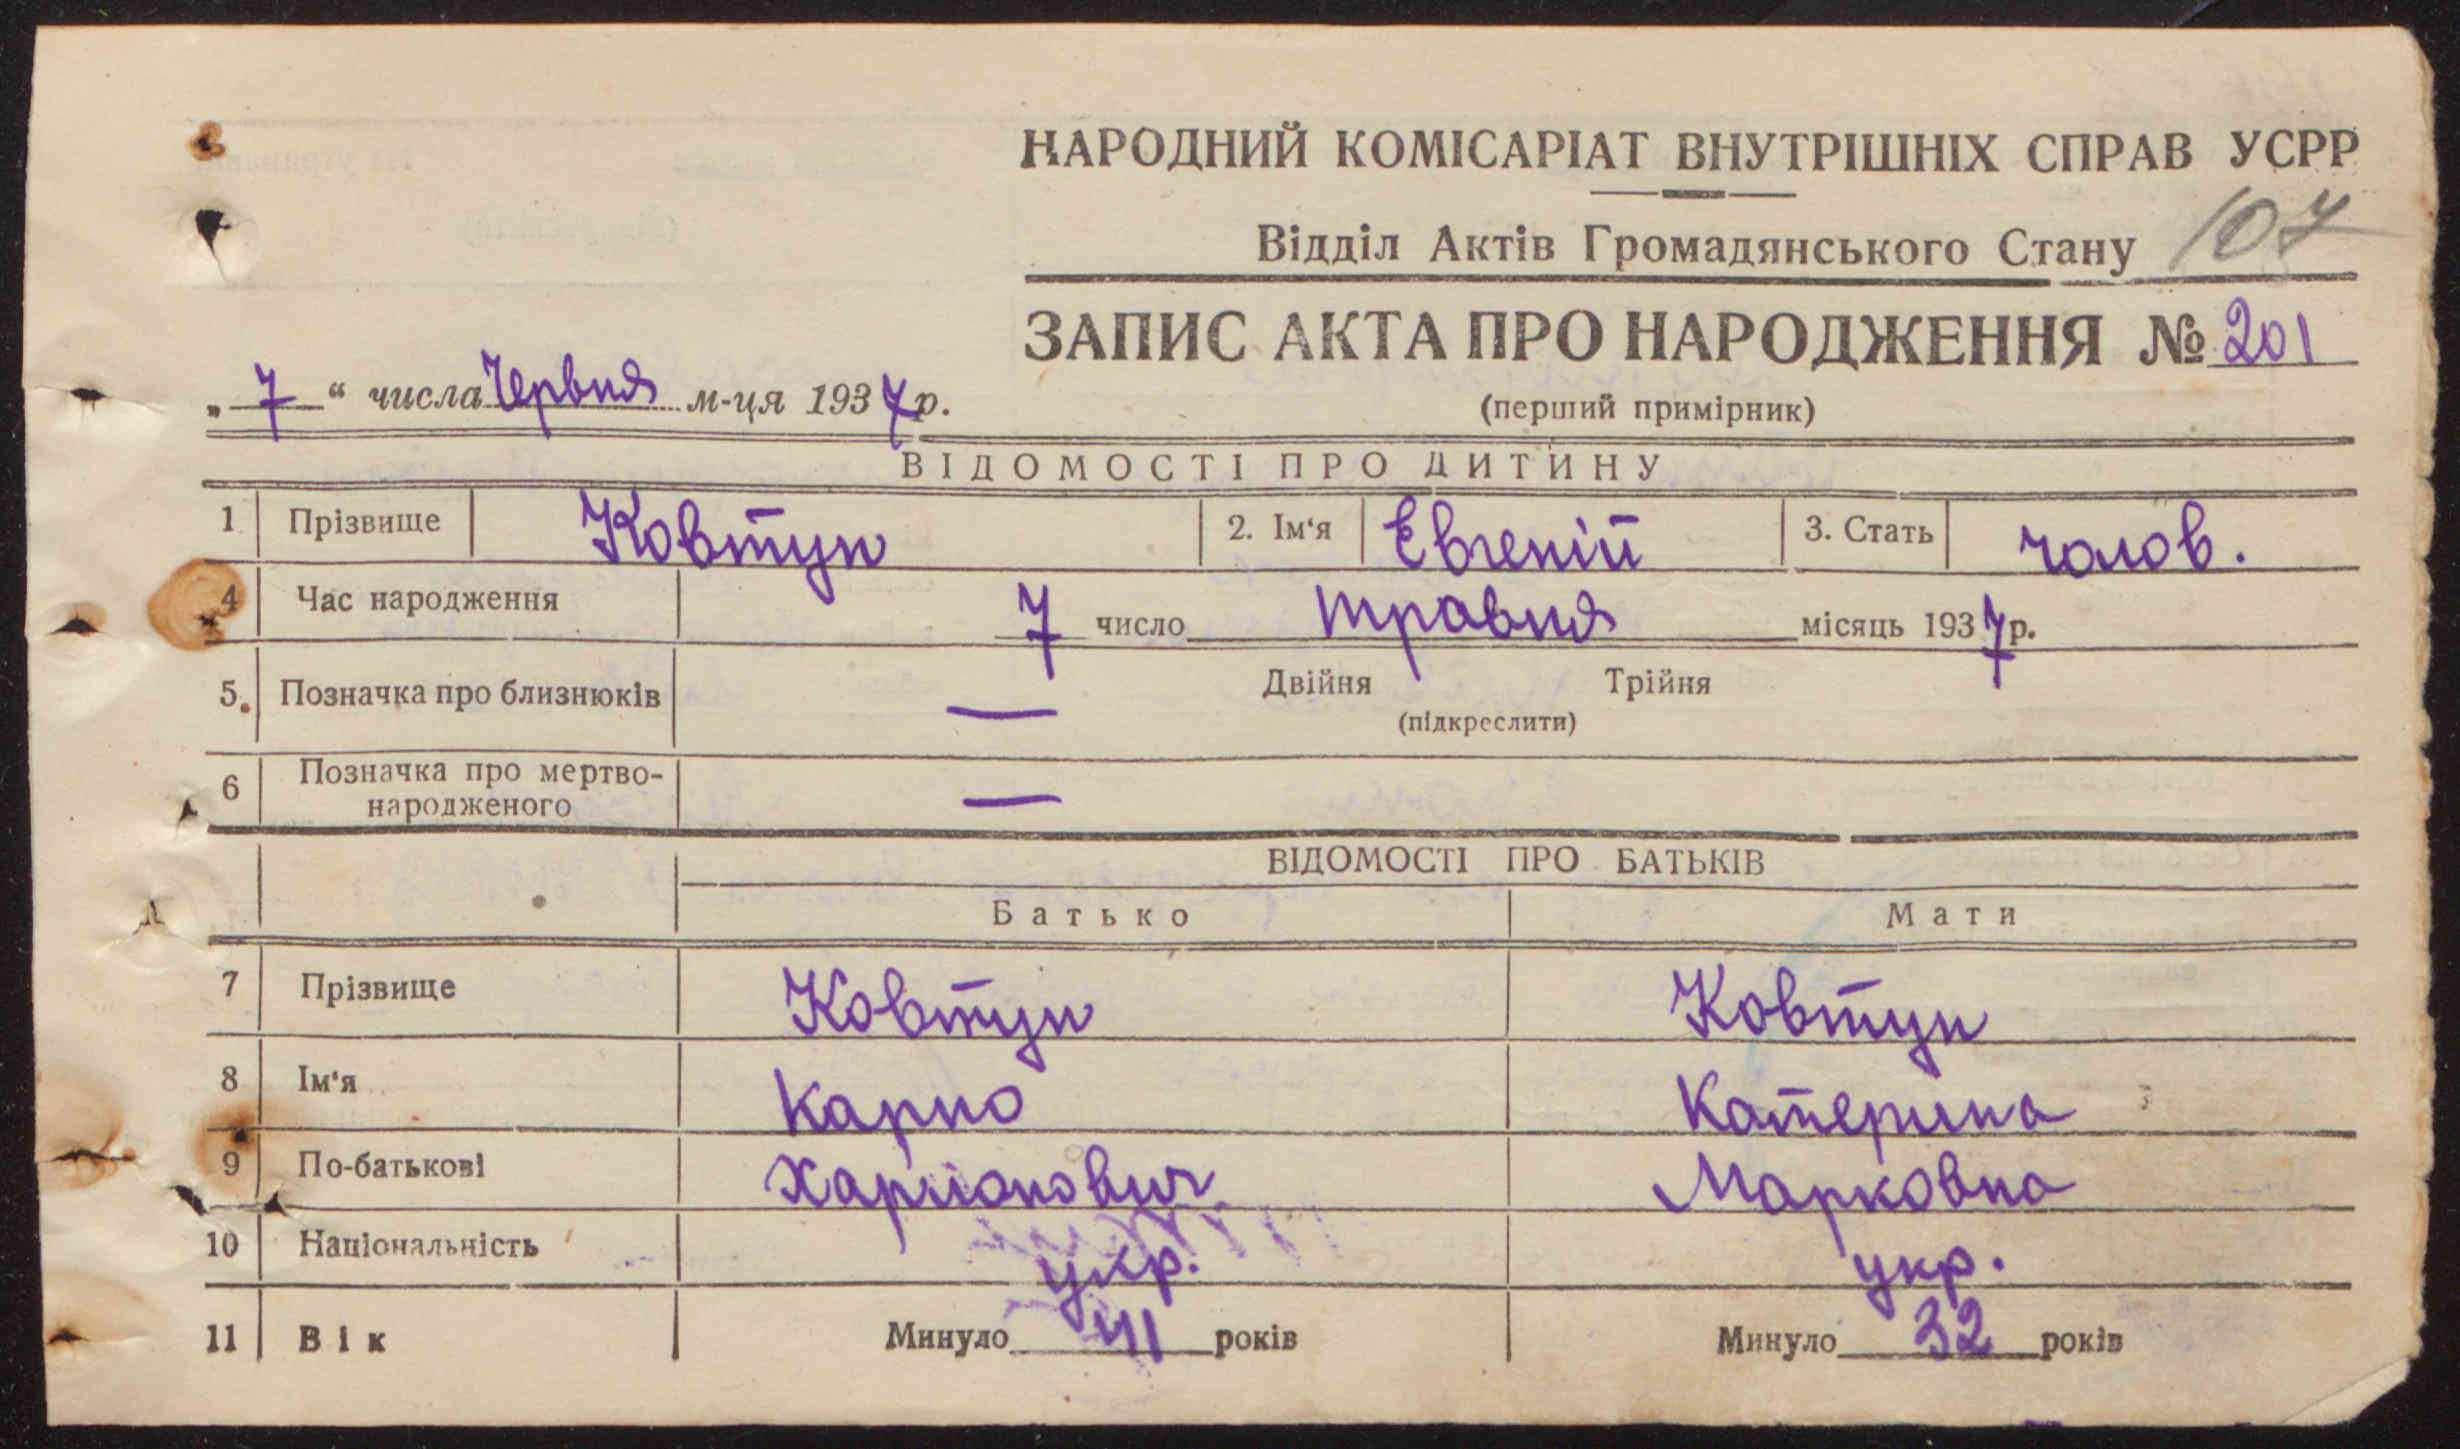 НАРОДНИЙ КОМІСАРІАТ ВНУТРІШНІХ СПРАВ УСРР
Відділ Актів Громадянського Стану 107
ЗАПИС АКТА ПРО НАРОДЖЕННЯ № 201
„7“ числа Червня м-ця 1937 р.
(перший примірник)
ВІДОМОСТІ ПРО ДИТИНУ
1 Прізвище Ковтун 2. Ім‘я Евгеній 3. Стать чолов.
4 Час народження 7 число травня місяць 1937 р.
5. Позначка про близнюків — Двійня Трійня
(підкреслити)
6 Позначка про мертво-
народженого —
ВІДОМОСТІ ПРО БАТЬКІВ
Батько Мати
7 Прізвище Ковтун Ковтун
8 Ім‘я Карпо Катерина
9 По-батькові Харіонович Марковна
10 Національність укр. укр.
11 Вік Минуло 41 років Минуло 32 років